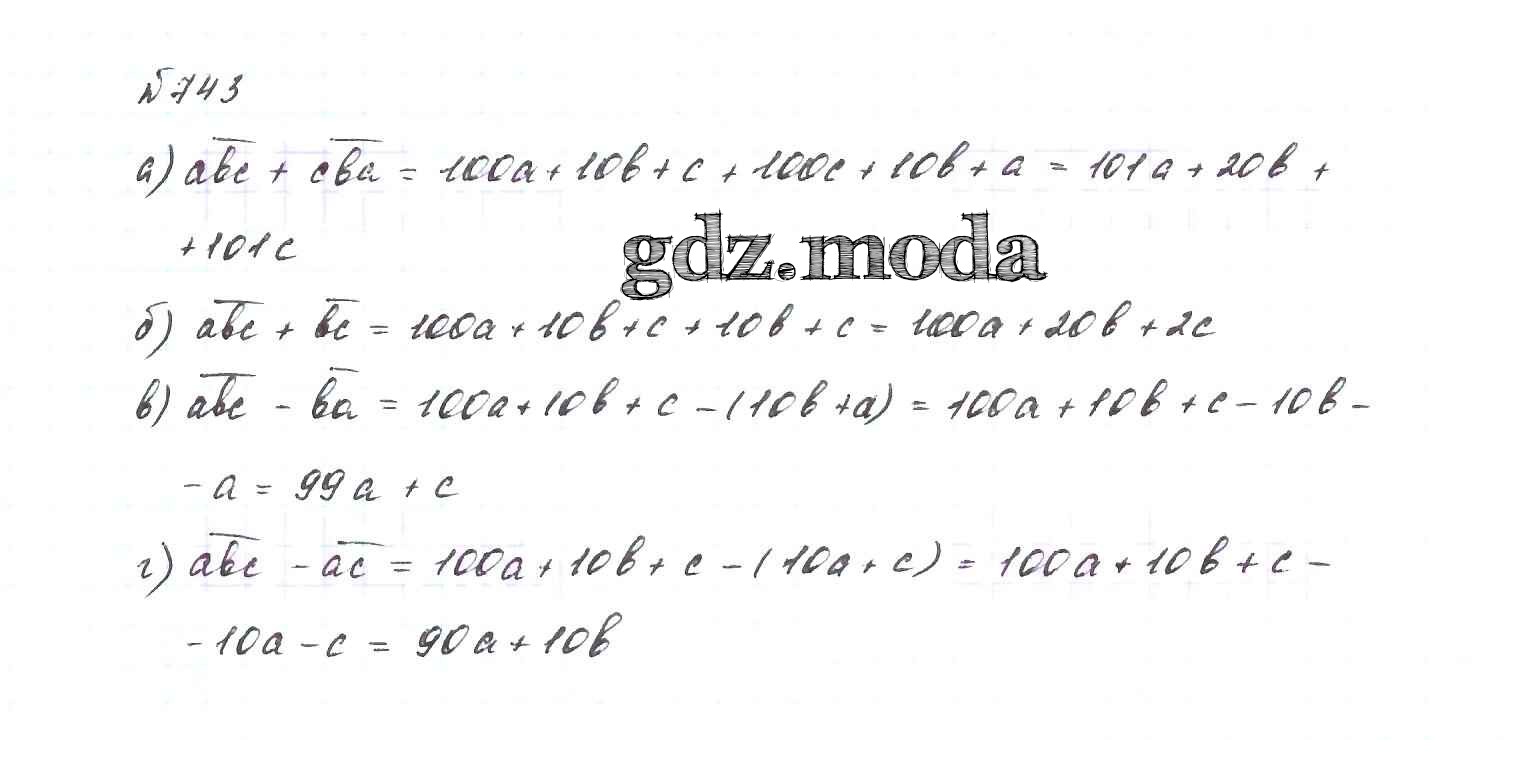 №743
а) a̅b̅c̅ + c̅b̅a̅ = 100a + 10b + c + 100c + 10b + a = 101a + 20b +
+ 101c
gdz.moda
б) a̅b̅c̅ + b̅c̅ = 100a + 10b + c + 10b + c = 100a + 20b + 2c
в) a̅b̅c̅ - b̅a̅ = 100a + 10b + c - (10b + a) = 100a + 10b + c - 10b -
- a = 99a + c
г) a̅b̅c̅ - a̅c̅ = 100a + 10b + c - (10a + c) = 100a + 10b + c -
- 10a - c = 90a + 10b